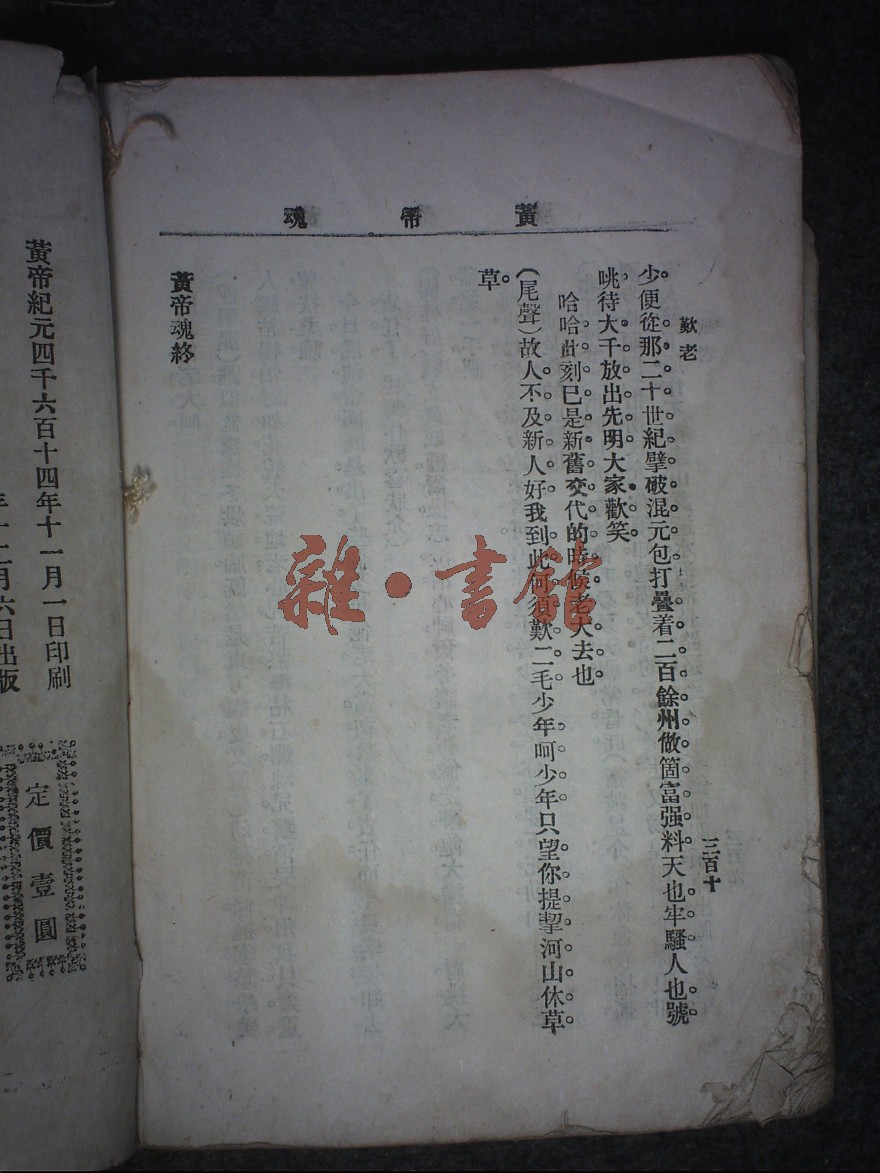 黃帝魂
歎老
三百十
少便從那二十世紀擘破混元包打疊着二百餘州做箇富强料天也牢騷人也號
咷待大千放出先明大家歡笑
哈哈此刻已是新舊交代的時候老大去也
(尾聲)故人不及新人好我到此何須歎二毛少年呵少年只望你提挈河山休草
草
黃帝魂終
雜·書館
黃帝紀元四千六百十四年十一月一日印刷
年十二月六日出版
定價壹圓